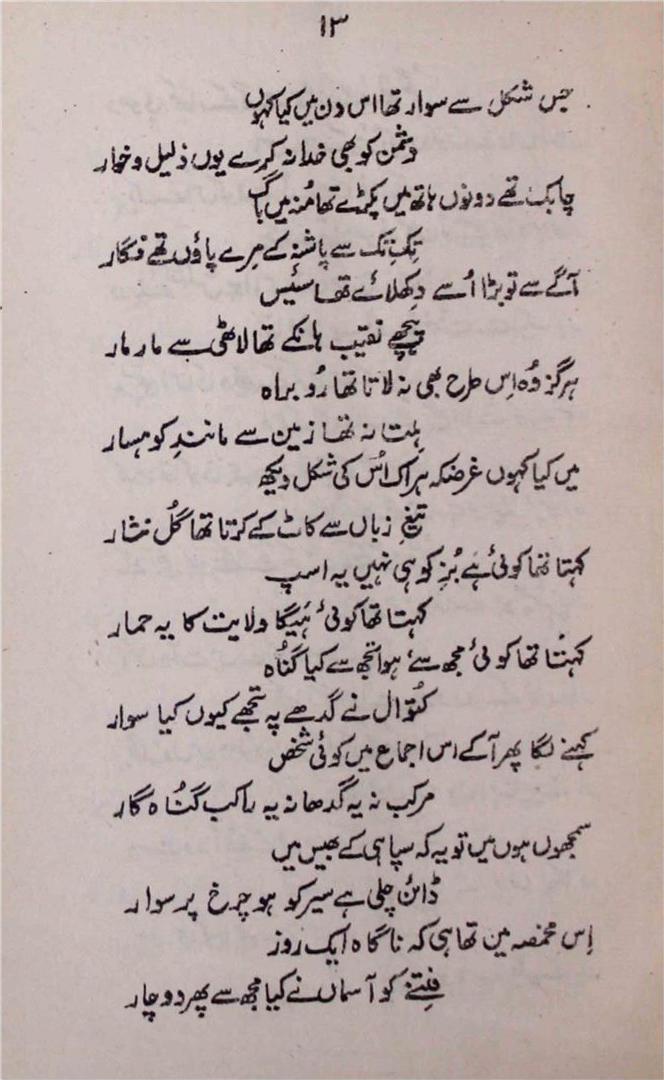 ۱۳
جس شکل سے سوار تھا اس دن میں کیا کہوں
دشمن کو بھی خدا نہ کرے یوں ذلیل و خوار
چابک تھے دونوں ہاتھ میں پکڑے تھا مُنہ میں باگ
تِک تِک سے پاشنہ کے مِرے پاؤں تھے فگار
آگے سے توبڑا اُسے دِکھلائے تھا سئیں
پیچھے نقیب ہانکے تھا لاٹھی سے مار مار
ہرگز وُہ اِس طرح بھی نہ لاتا تھا رُو براہ
ہلتا نہ تھا زمین سے مانندِ کوہسار
میں کیا کہوں غرضکہ ہر اک اُس کی شکل دیکھ
تیغِ زباں سے کاٹ کے کرتا تھا گُل نثار
کہتا تھا کوئی ہے بُزِ کوہی نہیں یہ اسپ
کہتا تھا کوئی ہَیگا ولایت کا یہ حمار
کہتا تھا کوئی مجھ سے، ہوا تجھ سے کیا گناہ
کتوال نے گدھے پہ تجھے کیوں کیا سوار
کہنے لگا پھر آ کے اس اجماع میں کوئی شخص
مرکب نہ یہ گدھا نہ یہ راکب گناہ گار
سمجھوں ہوں میں تو یہ کہ سپاہی کے بھیس میں
ڈائن چلی ہے سیر کو ہو چرخ پر سوار
اِس مخمصہ میں تھا ہی کہ ناگاہ ایک روز
فِتنے کو آسماں نے کیا مجھ سے پھر دوچار